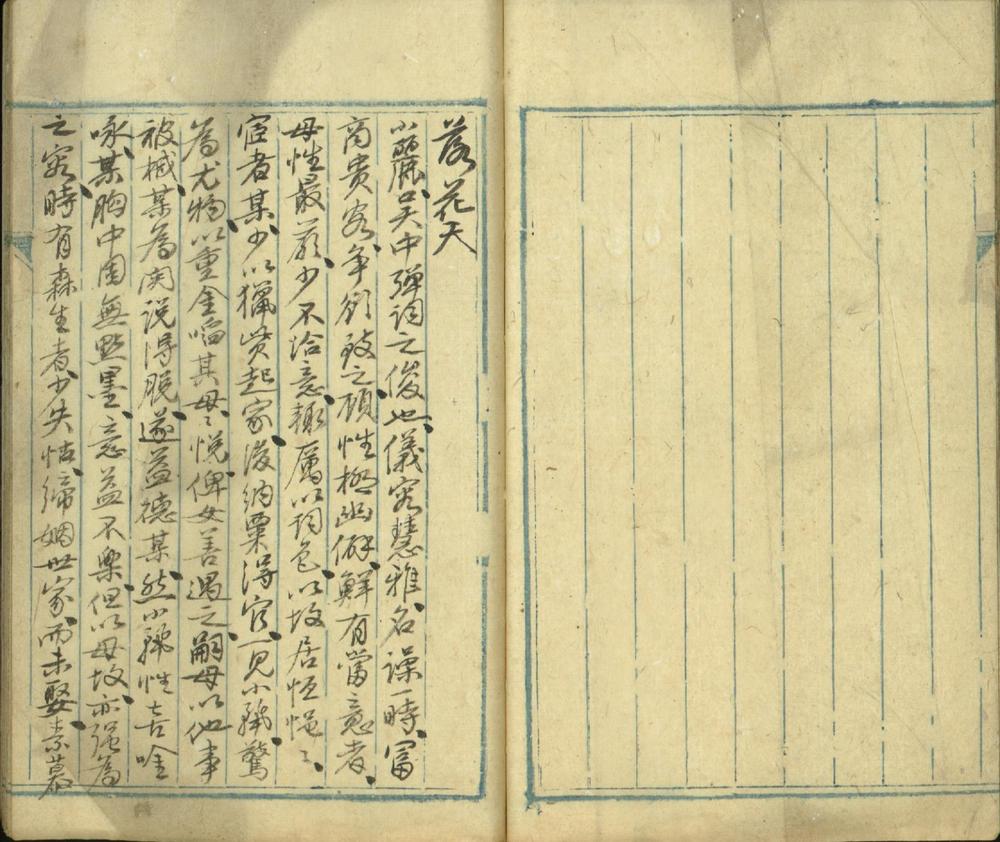 落花天
小麗、吳中彈詞之俊也、儀容慧雅、名譟一時、富
商貴客、爭欲致之、顧性極幽僻、鮮有當意者、
母性最嚴、少不洽意、輒厲以詞色、以故居恒悒〻、
宦者某、少以獵貲起家、後納粟得官、一見小麗、驚
為尤物、以重金啗其母、〻悅、俾女善遇之、嗣母以他事
被撼、某為関說得脱、遂益德某、然小麗性古唫
咏、某胸中固無點墨、意益不樂、但以母故、亦强為
之容、時有森生者、少失怙、締姻世家、而未娶、素慕